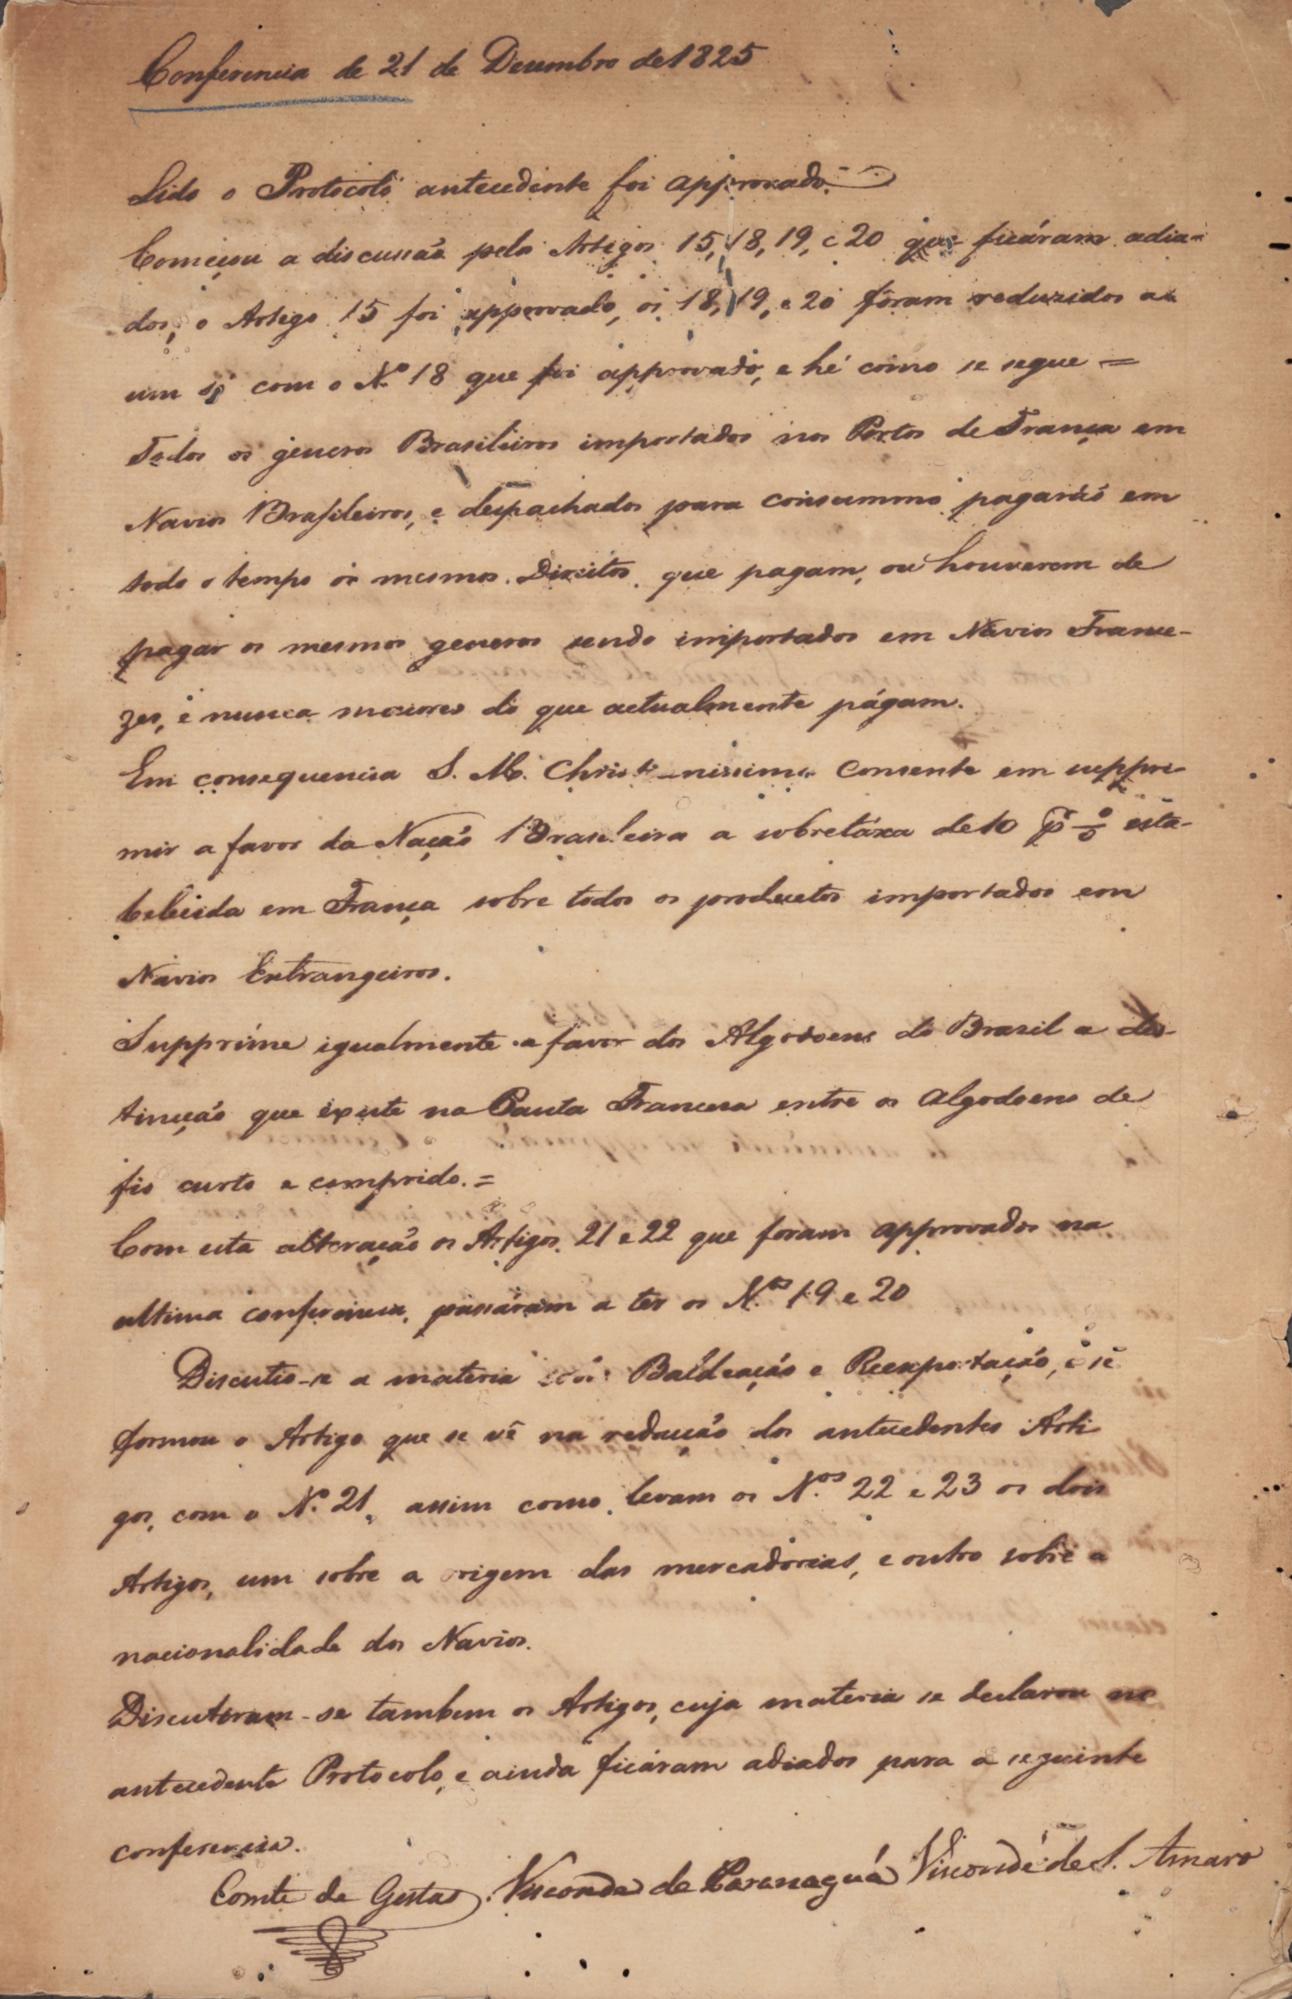 Conferencia de 21 de Dezembro de 1825
Lido o Protocolo antecedente foi approvado.
Começou a discussão pelos Artigos 15, 18, 19, e 20 que ficáram adia-
dos, o Artigo 15 foi approvado, os 18, 19, e 20 fôram reduzidos a
um só com o N.º 18 que foi approvado, e hé como se segue =
Todos os generos Brasileiros importados nos Portos de França em
Navios Brasileiros, e despachados para consummo pagaráõ em
todo o tempo os mesmos Direitos, que pagam, ou houverem de
pagar os mesmos generos sendo importados em Navios France-
zes, e nunca maiores do que actualmente págam.
Em consequencia S. M. Christianissima Consente em suppri-
mir a favor da Nação Brasileira a sobretáxa de 10 p% esta-
belecida em França sobre todos os productos importados em
Navios Estrangeiros.
Supprime igualmente a favor dos Algodoens do Brasil a dis-
tincção que existe na Pauta Francesa entre os Algodoens de
fio curto e comprido. =
Com esta alteração os Artigos 21 e 22 que foram approvados na
ultima conferencia, passáram a ter os N.os 19 e 20
Discutio-se a materia Baldeação e Reexportação, e se
formou o Artigo que se vê na redacção dos antecedentes Arti
gos, com o N.º 21, assim como levam os N.os 22 e 23 os dois
Artigos, um sobre a origem das mercadorias, e outro sobre a
nacionalidade dos Navios.
Discuteram-se tambem os Artigos, cuja materia se declarou no
antecedente Protocolo, e ainda ficáram adiados para a seguinte
conferencia.
Comte de Gestas. Visconde de Paranaguá Visconde de S. Amaro